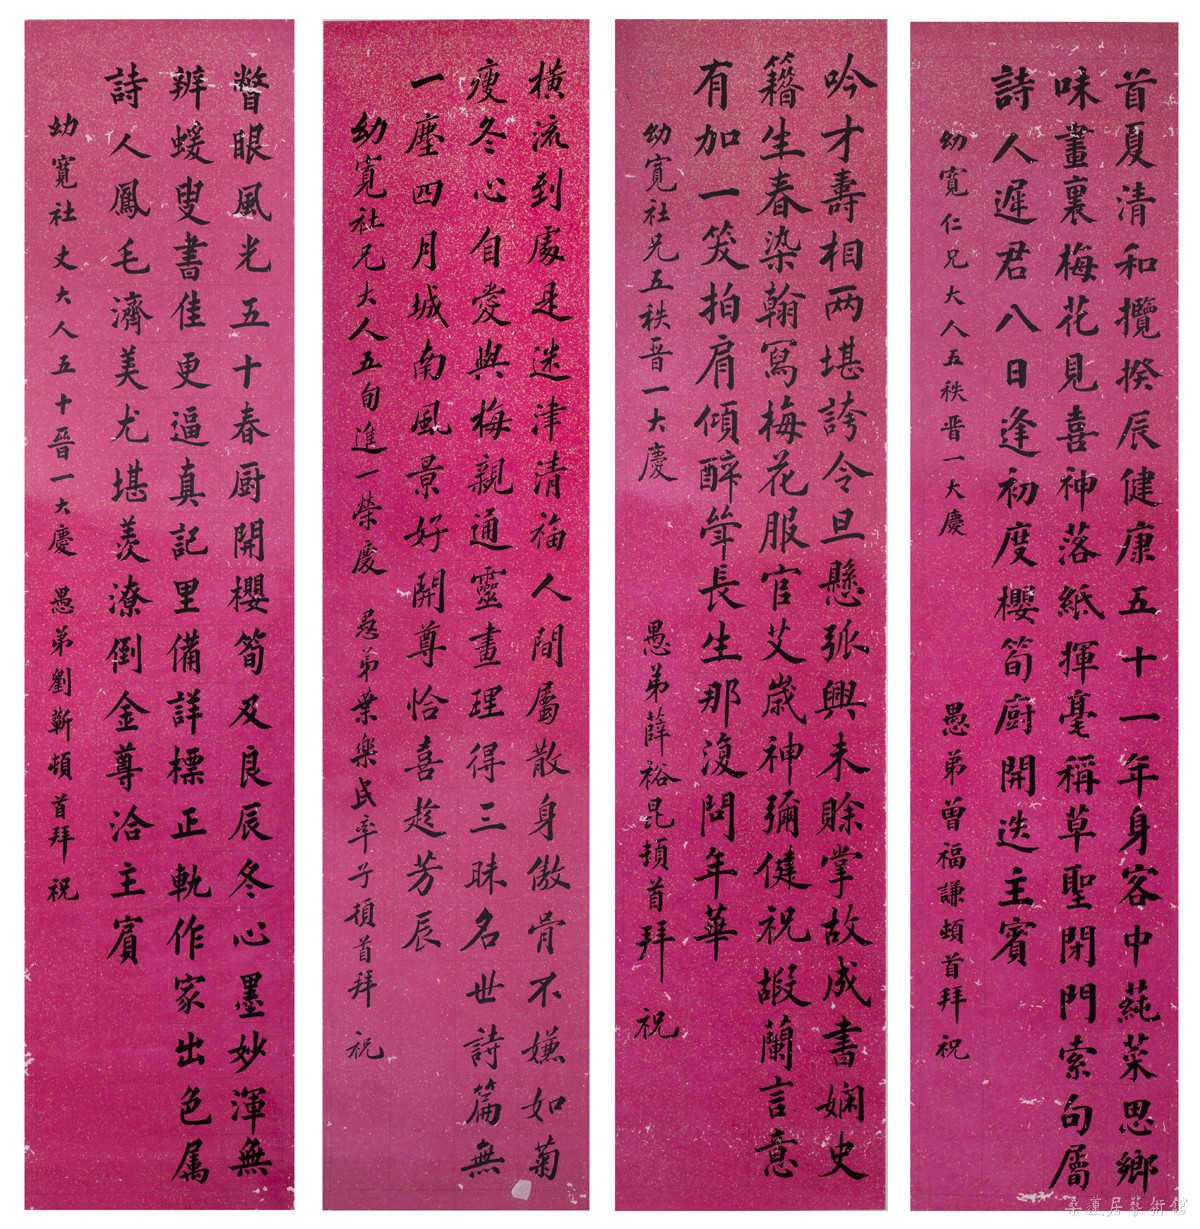 首夏清和攬揆辰健康五十一年身客中蒓菜思鄉
味畫裏梅花見喜神落紙揮毫稱草聖閉門索句屬
詩人遲君八日逢初度櫻筍廚開迭主賓
幼寬仁兄大人五秩晋一大慶 愚弟曾福謙頓首拜祝
吟才壽相两堪誇令旦懸弧興未賒掌故成書嫻史
籀生春染翰寫梅花服官艾歲神彌健祝嘏蘭言意
有加一笑拍肩傾醉斝長生那復問年華
幼寬社兄五秩晋一大慶 愚弟薛裕昆頓首拜祝
橫流到處是迷津清福人間屬散身傲骨不嫌如菊
瘦冬心自愛與梅親通靈畫理得三昧名世詩篇無
一塵四月城南風景好開尊恰喜趁芳辰
幼寬社兄大人五旬進一榮慶 愚弟葉樂民率子頓首拜祝
瞥眼風光五十春厨開櫻筍及良辰冬心墨妙渾無
辨蝯叟書佳更逼真記里備詳標正軌作家出色属
詩人鳳毛濟美尤堪羨潦倒金尊洽主賓
幼寬社丈大人五十晉一大慶 愚弟劉蘄頓首拜祝
桑蓮居藝術館